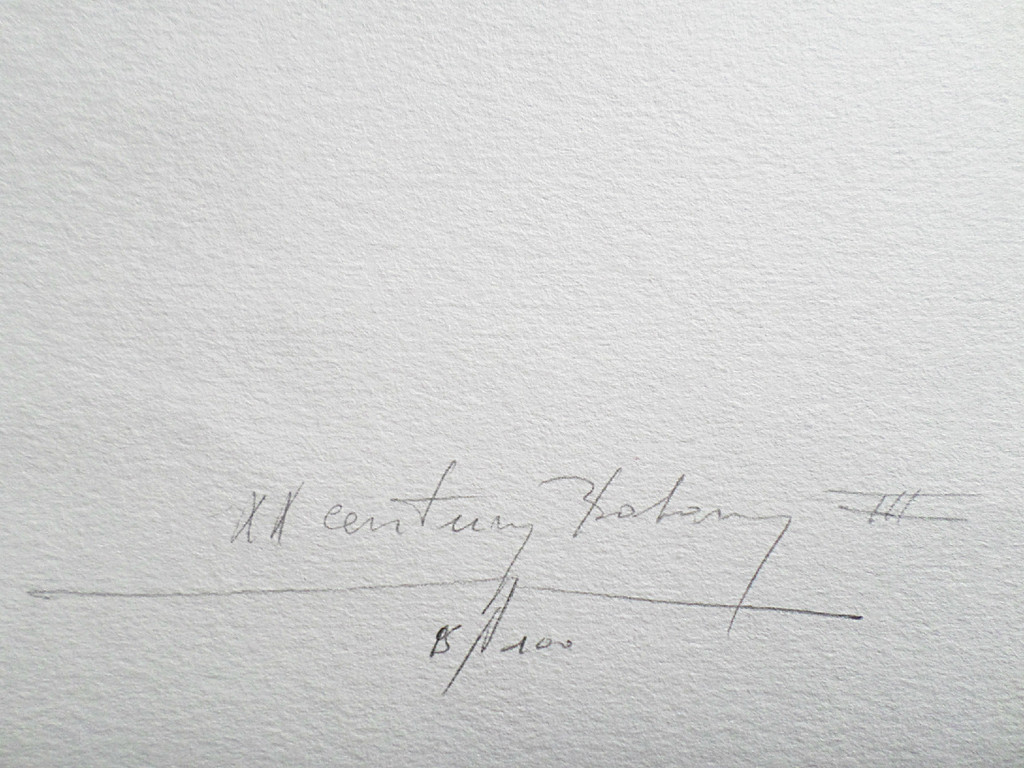 XX century Botany III
15/100